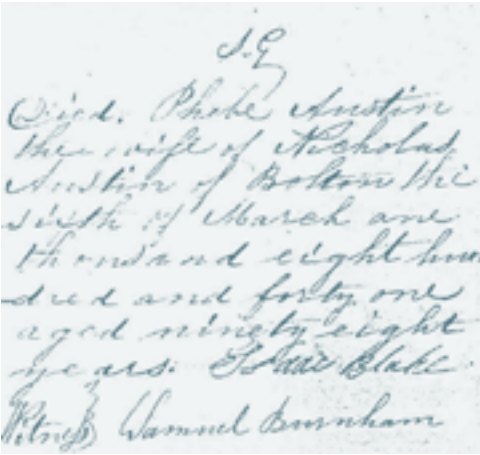 S.G
Died. Phebe Austin
the wife of Nicholas
Austin of Bolton the
sixth of March one
thousand eight hun
dred and forty one
aged ninety eight
years. Isaac Blake.
Witness} Samuel Burnham